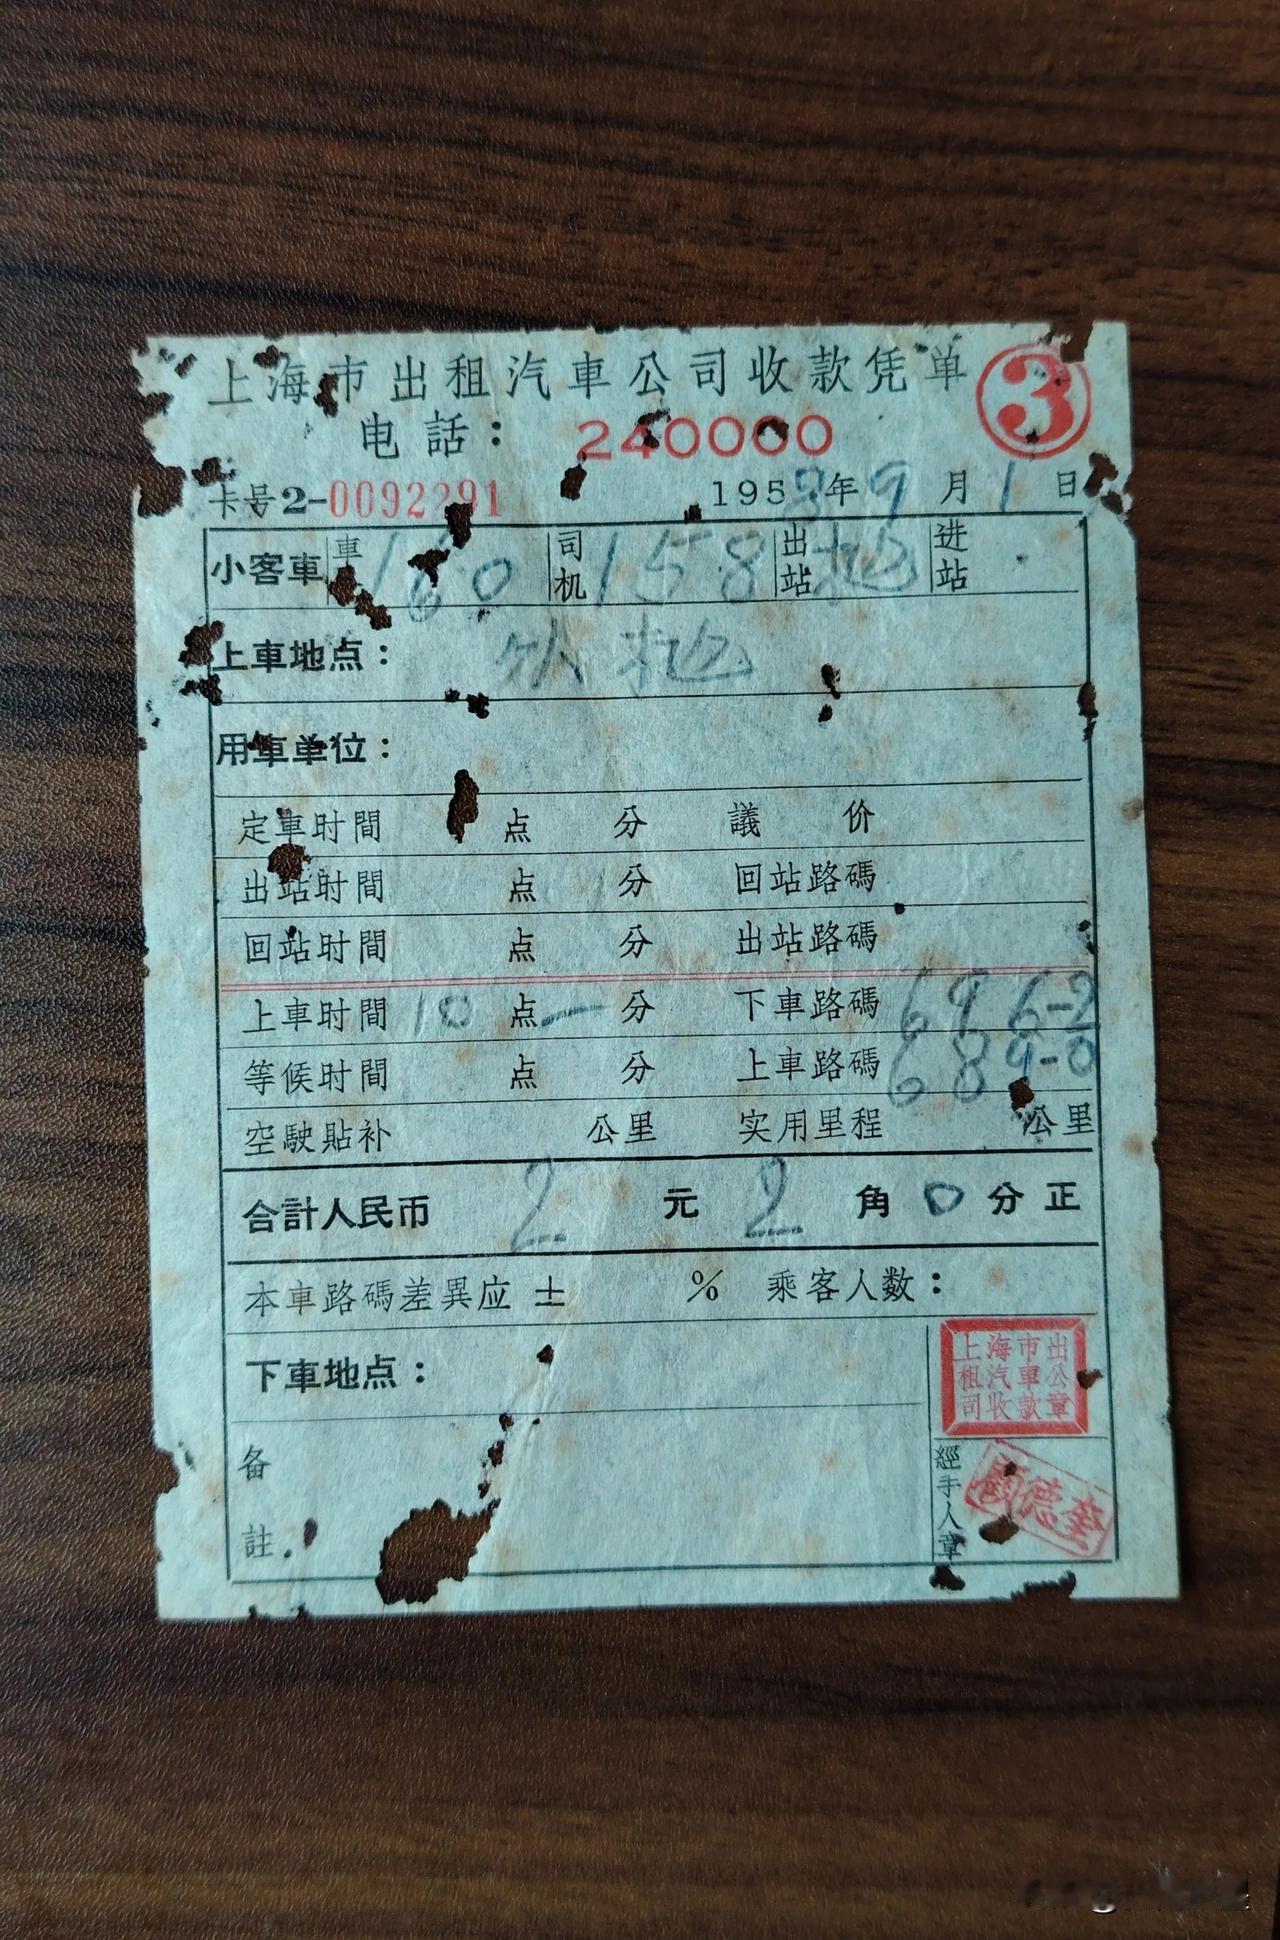 上海市出租汽車公司收款凭单
③
电話：240000
卡号2-0092291 195 年9月1日
小客車 車 160 司机 158 出站 进站
上車地点：
用車单位：
定車时間 点 分 議 价
出站时間 点 分 回站路碼
回站时間 点 分 出站路碼
上車时間 10 点 一 分 下車路碼 696-2
等候时間 点 分 上車路碼 689-0
空駛貼补 公里 实用里程 公里
合計人民币 2 元 2 角 0 分正
本車路碼差異应 ± % 乘客人数：
下車地点：
上海市出
租汽車公
司收款章
备註
經手人章
顧德奎